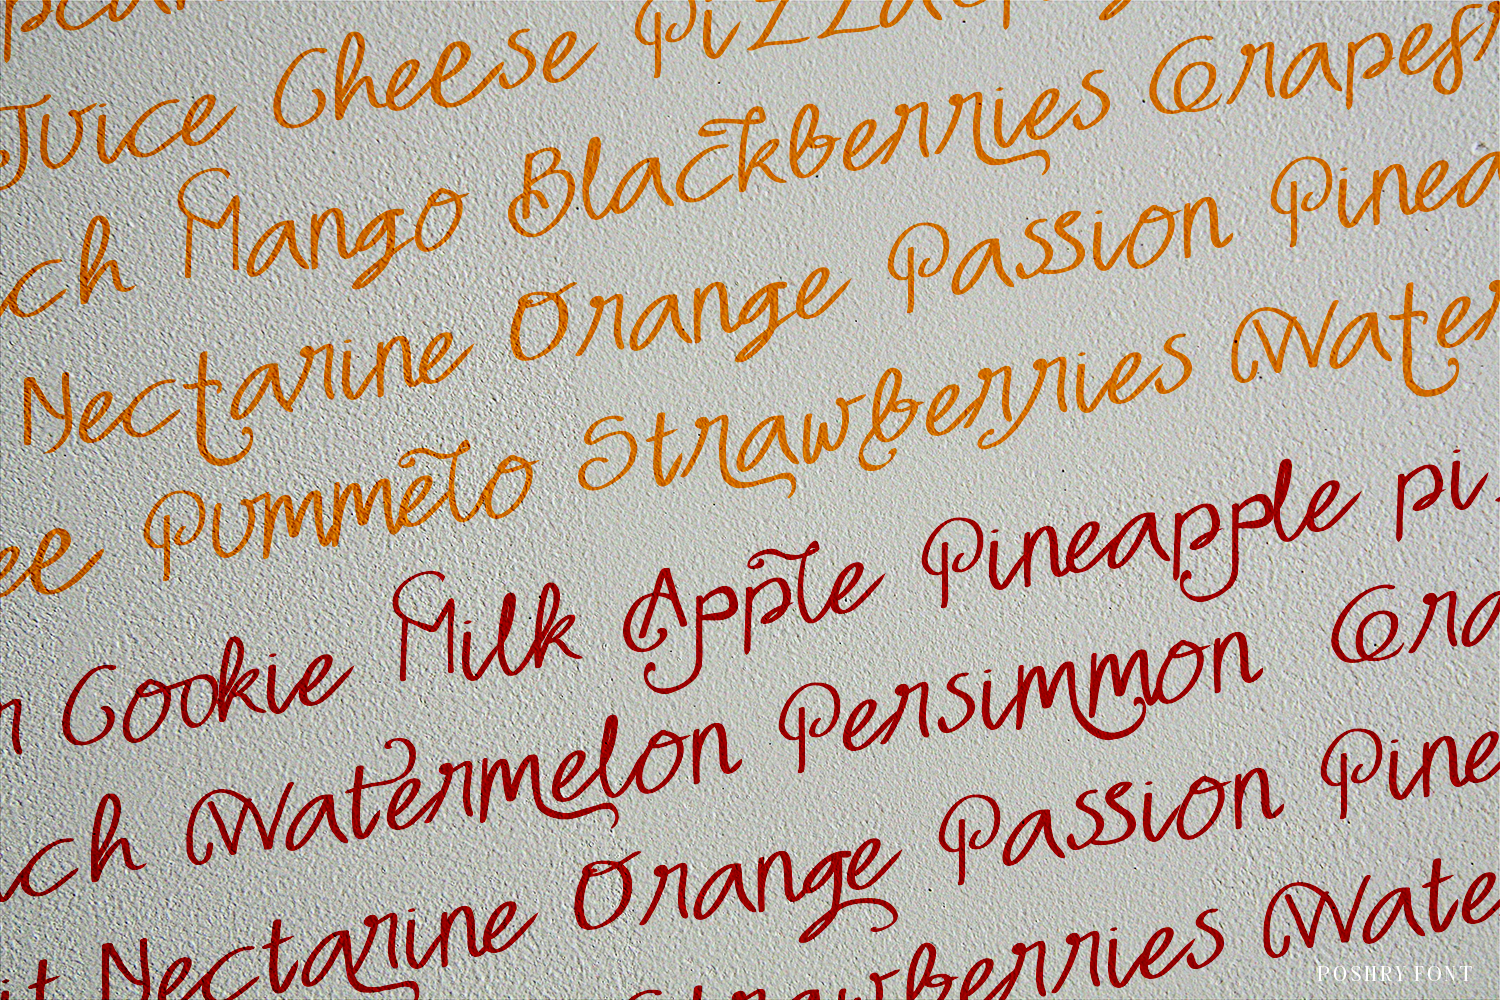 Juice Cheese Pizza
Mango Blackberries Grapefr
Nectarine Orange Passion Pinea
ee Pummelo Strawberries Water
n Cookie Milk Apple Pineapple pi
ch Watermelon Persimmon Gra
it Nectarine Orange Passion Pine
berries Wate
POSHRY FONT